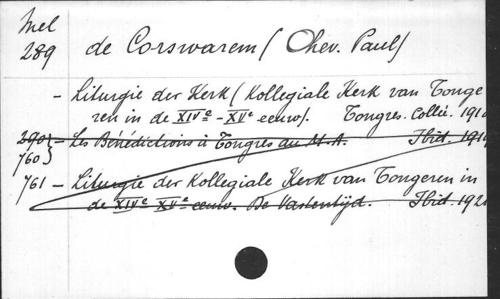 Mel
289 de Corswarem (Chev. Paul)
- Liturgie der Kerk (Kollegiale Kerk van Tonge
ren in de XIVe - XVe eeuw). Tongres. Collée. 191
290 } - Les Bénédictions à Tongres au M. A. Ibid. 191
760 }
761 - Liturgie der Kollegiale Kerk van Tongeren in
de XIVe XVe eeuw. De Vastentijd. Ibid. 192